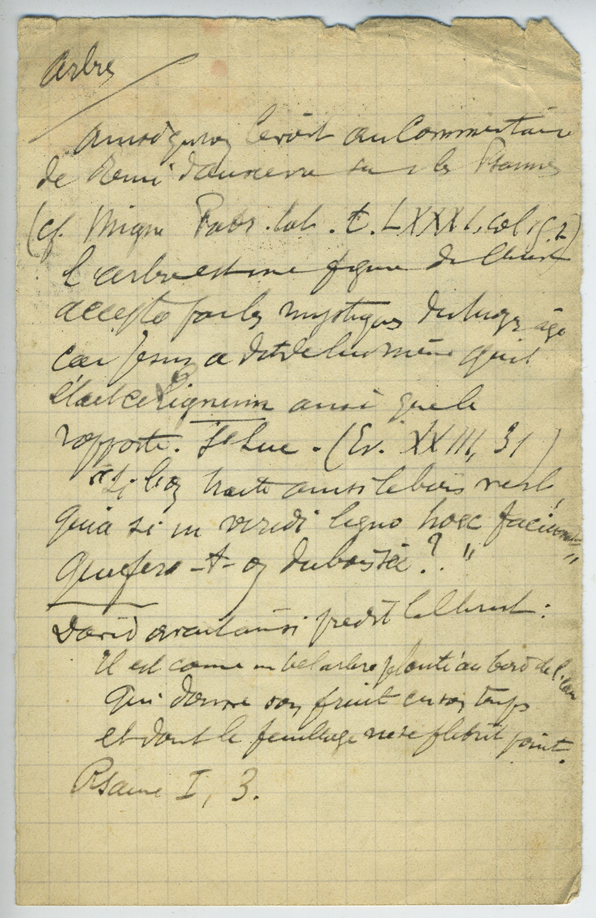 Arbre
Ainsi qu'on le voit au Commentaire
de Remi d'Auxerre sur les Psaumes
(cf. Migne Patr. lat. t. LXXXI, col 152)
l'arbre est une figure du Christ
accepté par les mystiques du moyen âge
car Jésus a dit de lui même qu'il
était ce lignum ainsi que le
rapporte St Luc. (Ev. XXIII, 31)
"Si l'on traite ainsi le bois vert,
quia si in viridi ligno haec faciunt
que fera-t-on du bois sec? "
David avait aussi prédit le Christ :
Il est come un bel arbre planté au bord de l'eau
qui donne son fruit en son temps
et dont le feuillage ne se flétrit point.
Psaume I, 3.